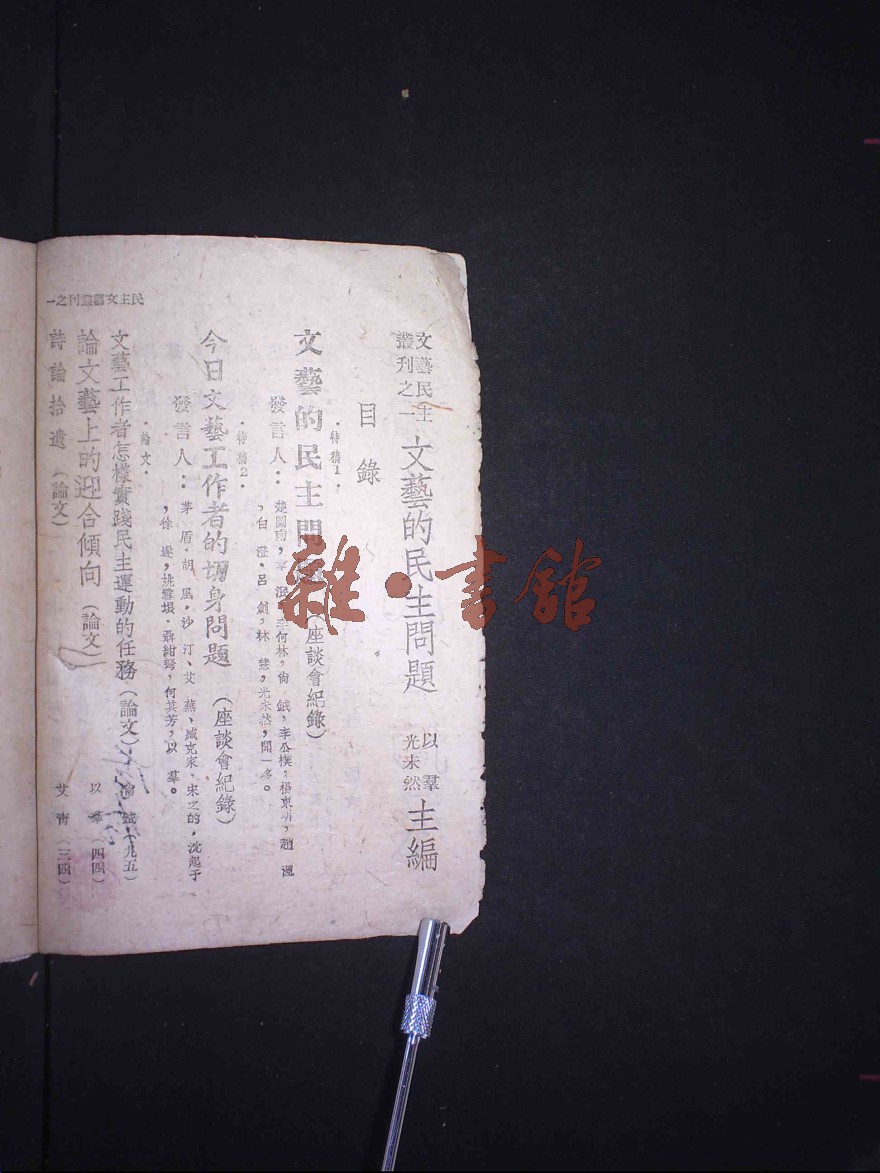 文藝民主
叢刊之一
文藝的民主問題
以羣
光未然
主編
目錄
·特稿1·
文藝的民主問題(座談會紀錄)
發言人：楚圖南，李何林，尙鉞，李公樸，楊東明，趙渢
，白澄，呂劍，林慧，光未然，聞一多。
·特稿2·
今日文藝工作者的切身問題(座談會紀錄)
發言人：茅盾，胡風，沙汀、艾蕪、臧克家，宋之的，沈起予
，徐遲，姚雪垠，聶紺弩，何其芳，以羣。
·論文·
文藝工作者怎樣實踐民主運動的任務(論文)尙鉞(九五)
論文藝上的迎合傾向(論文)以羣(四四)
詩論拾遺(論文)艾青(三四)
民主文藝叢刊之一
雜·書館